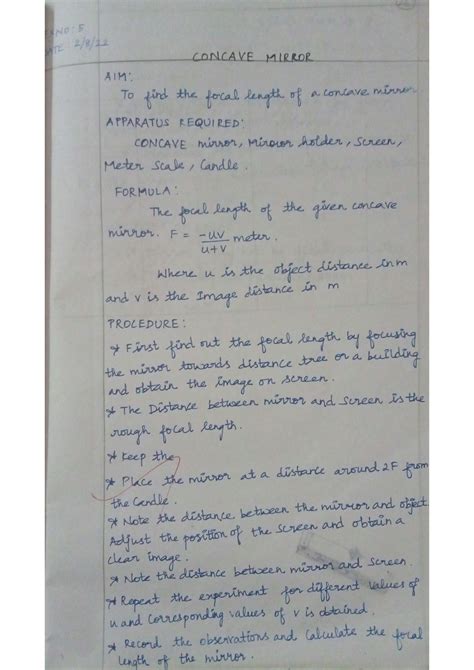 NO: 5
DATE 2/8/22
CONCAVE MIRROR
AIM:
To find the focal length of a concave mirror
APPARATUS REQUIRED:
CONCAVE mirror, Mirowr holder, Screen,
Meter Scale, Candle.
FORMULA:
The focal length of the given concave
mirror. F = -uv/u+v meter.
Where u is the object distance in m
and v is the Image distance in m
PROCEDURE:
* First find out the focal length by focusing
the mirror towards distance tree or a building
and obtain the image on screen.
* The Distance between mirror and Screen is the
rough focal length.
* Keep the
* Place the mirror at a distance around 2F from
the Candle.
* Note the distance between the mirror and object
Adjust the position of the Screen and obtain a
clear image.
* Note the distance between mirror and Screen.
* Repeat the experiment for different values of
u and Corresponding values of v is obtained.
* Record the observations and Calculate the focal
length of the mirror.